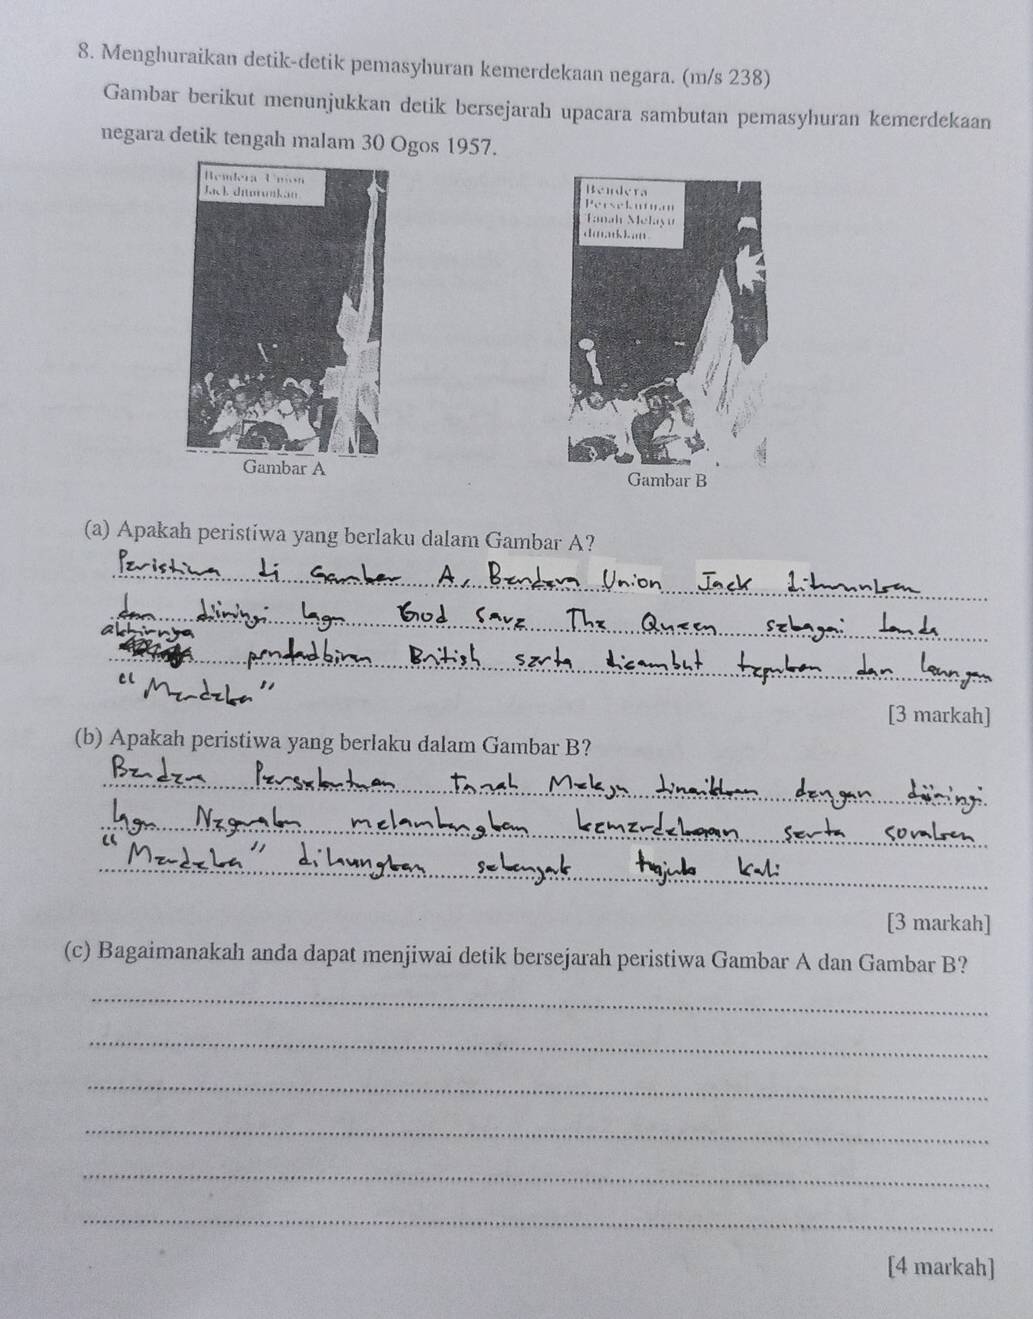 8. Menghuraikan detik-detik pemasyhuran kemerdekaan negara. (m/s 238)
Gambar berikut menunjukkan detik bersejarah upacara sambutan pemasyhuran kemerdekaan
negara detik tengah malam 30 Ogos 1957.
Bendera Union
Jack diturunkan
Bendera
Persekutuan
Tanah Melayu
dinaikkan.
Gambar A
Gambar B
(a) Apakah peristiwa yang berlaku dalam Gambar A?
Peristiwa di Gambar A, Bendera Union Jack diturunkan
dan diiringi lagu God Save The Queen sebagai tanda
akhirnya pendadbiran British serta disambut tepukan dan laungan
"Merdeka"
[3 markah]
(b) Apakah peristiwa yang berlaku dalam Gambar B?
Bendera Persekutuan Tanah Melayu dinaikkan dengan diiringi
lagu Negaraku melambangkan kemerdekaan serta sorakan
"Merdeka" dilaungkan sebanyak tujuh kali
[3 markah]
(c) Bagaimanakah anda dapat menjiwai detik bersejarah peristiwa Gambar A dan Gambar B?
[4 markah]